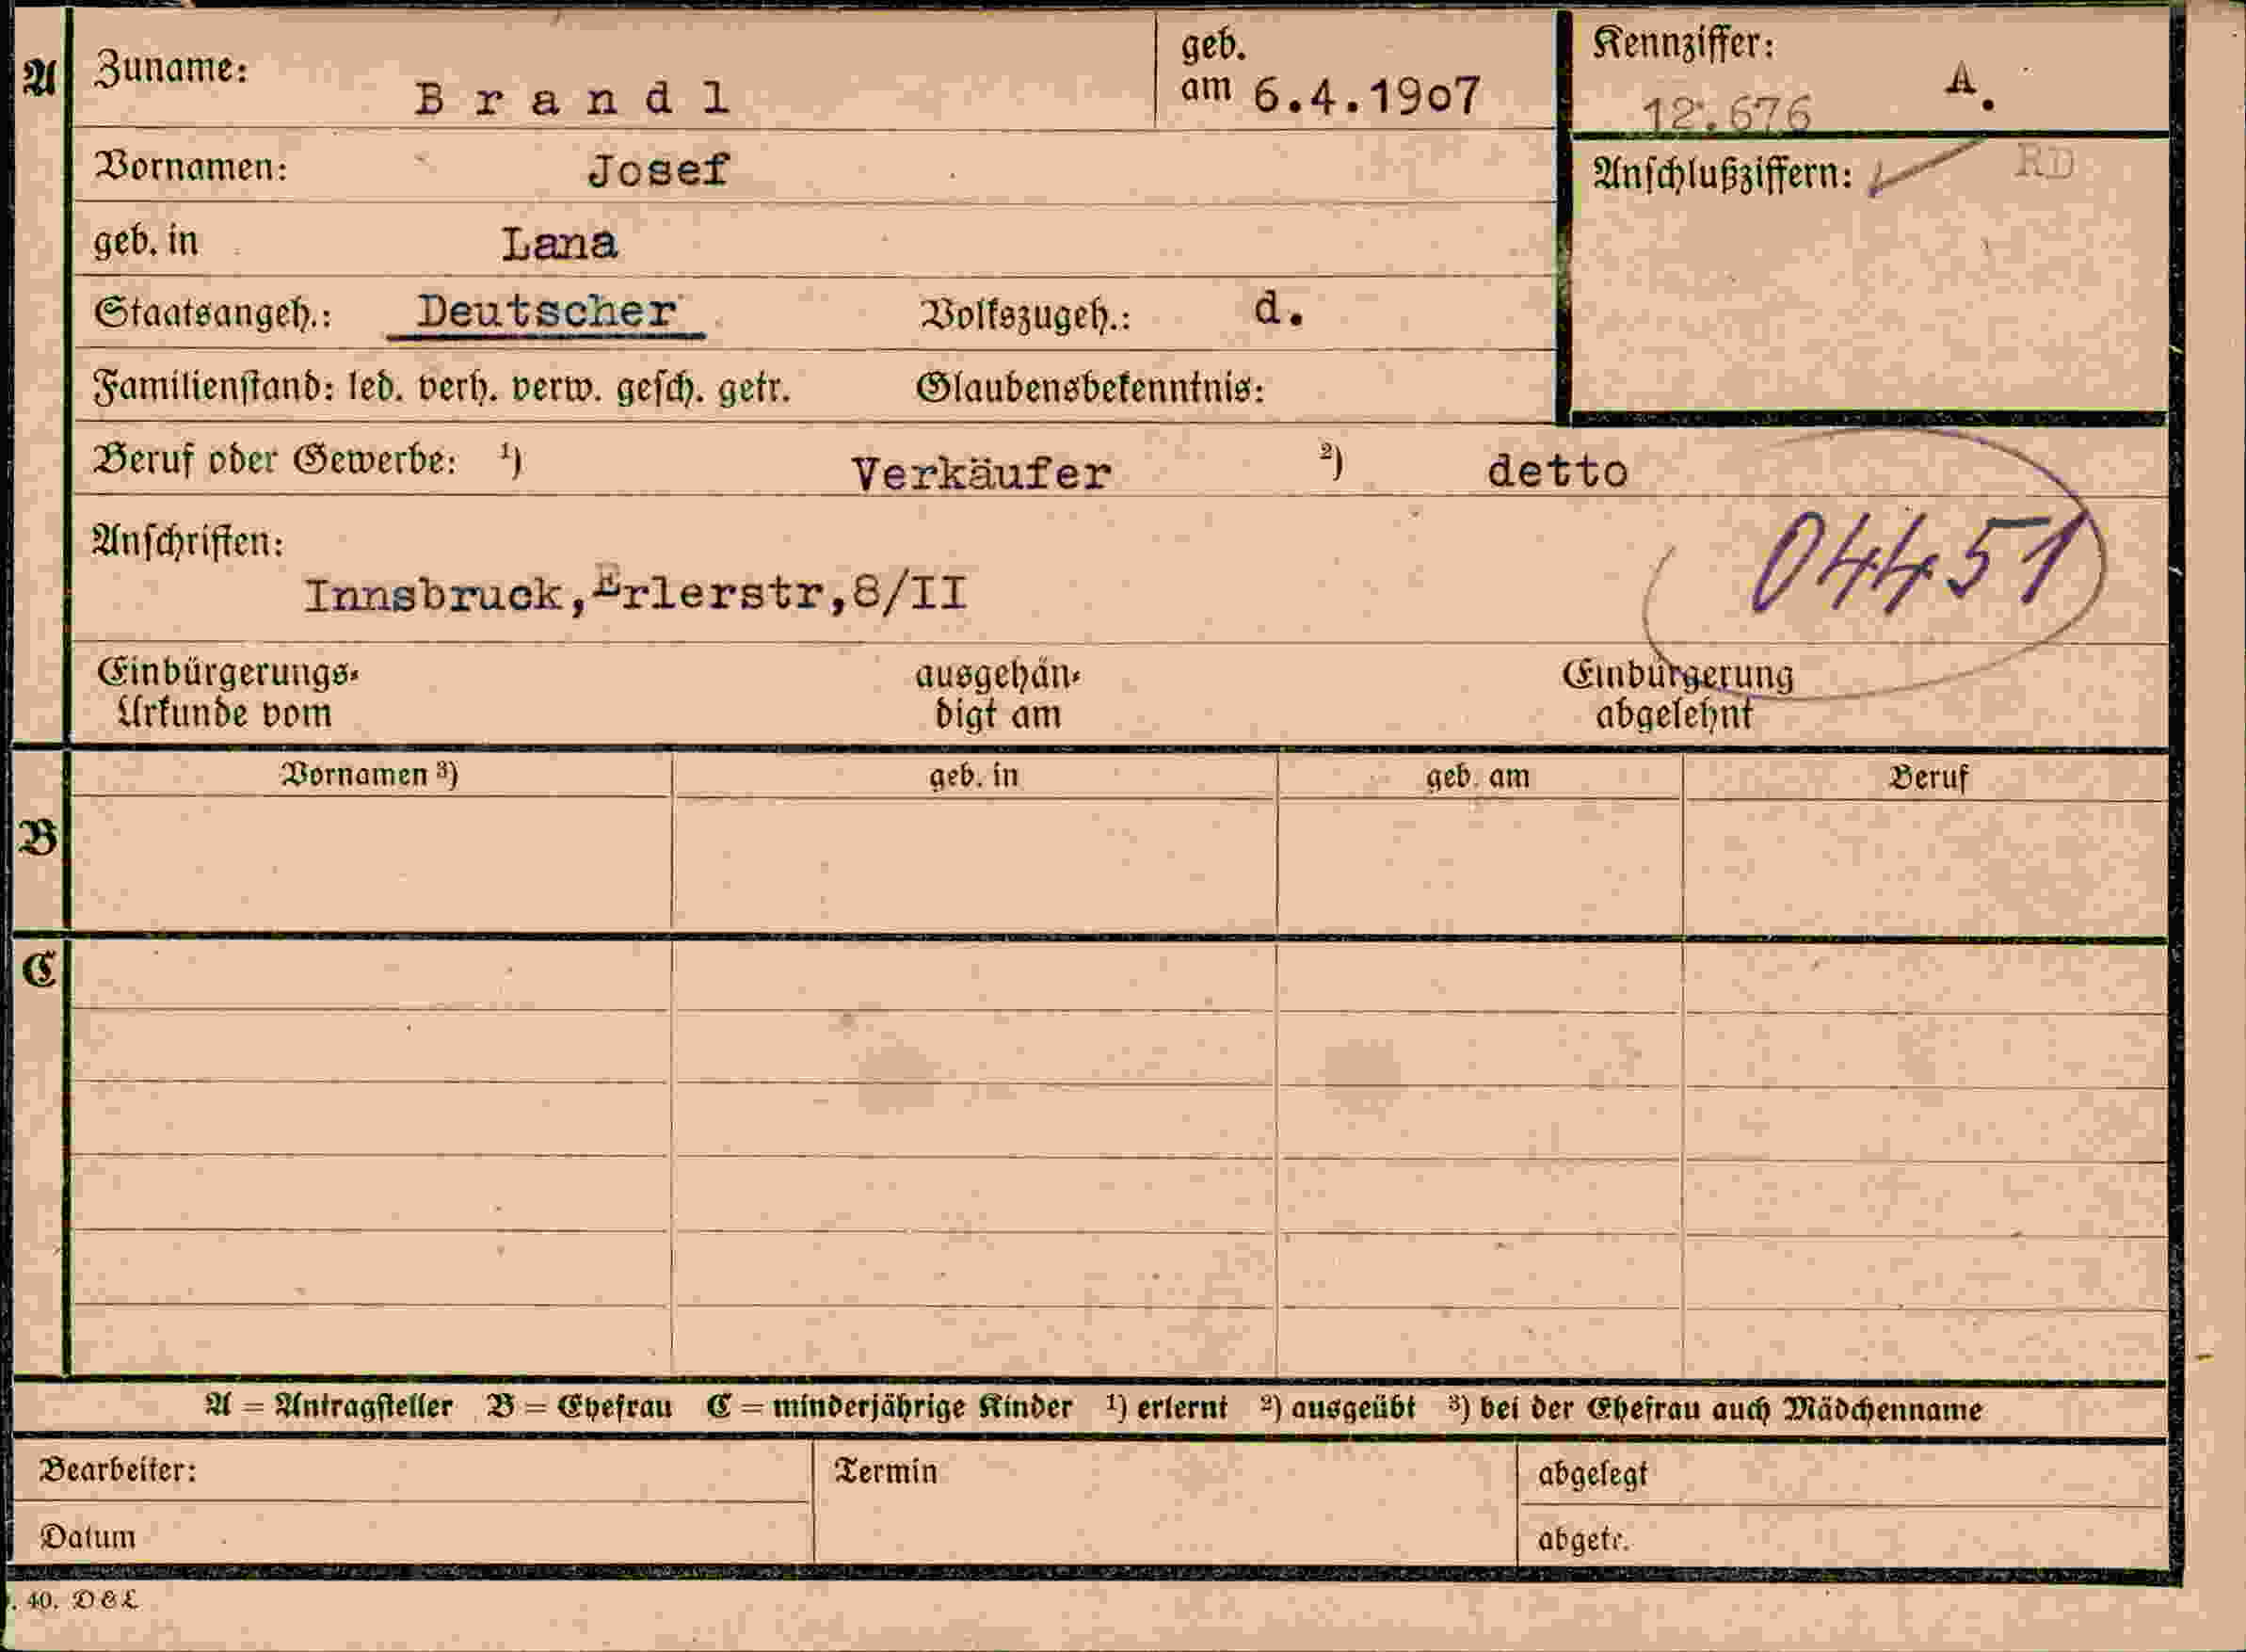 A Zuname: Brandl geb. am 6.4.1907 Kennziffer: 12.676 A.
Vornamen: Josef Anschlußziffern: RD
geb. in Lana
Staatsangeh.: Deutscher Volkszugeh.: d.
Familienstand: led. verh. verw. gesch. getr. Glaubensbekenntnis:
Beruf oder Gewerbe: 1) Verkäufer 2) detto
Anschriften:
04451
Innsbruck,Erlerstr,8/II
Einbürgerungs- ausgehän- Einbürgerung
Urkunde vom digt am abgelehnt
Vornamen 3) geb. in geb. am Beruf
B
C
A = Antragsteller B = Ehefrau C = minderjährige Kinder 1) erlernt 2) ausgeübt 3) bei der Ehefrau auch Mädchenname
Bearbeiter: Termin abgelegt
Datum abgetr.
. 40. D & L